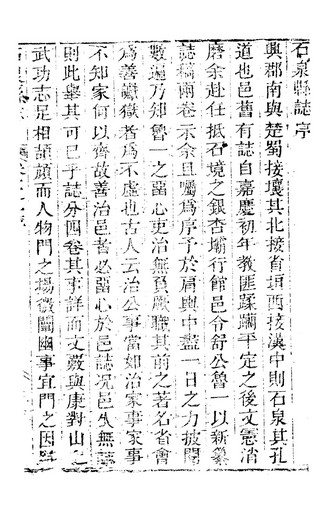 石泉縣誌序
興郡南與楚蜀接壤其北接省垣西接漢中則石泉其孔
道也邑舊有誌自嘉慶初年教匪蹂躪平定之後文憲消
磨余赴任抵石境之銀杏壩行館邑令舒公魯一以新纂
誌稿兩卷示余且囑為序予於肩輿中盡一日之力披閱
數過乃知魯一之留心吏治無負厥職其前之著名省會
為善讞獄者為不虛也古人云治公事當如治家事家事
不知家何以齊故善治邑者必留心於邑誌况邑失無誌
則此舉其可已乎誌分四卷其事詳而文簡與康對山之
武功志足相頡頏而人物門之揚微闡幽事宜門之因